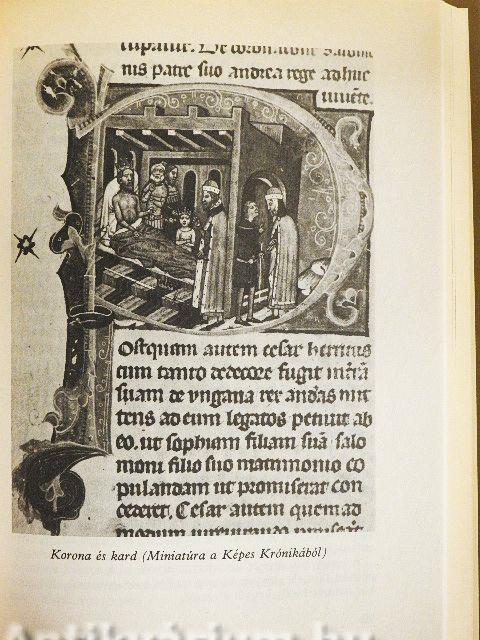 nis patre suo andrea rege adhuc
uiuēte.
Ostquam autem cesar henricus
cum tanto dedecore fugit
suam de vngaria rex andꝛas mit
tens ad eum legatos petiuit ab
eo. ut sophiam filiam suā salo
moni filio suo matrimonio co
pulandam ut promiserat con
cederet. Cesar autem quemad
modum
Korona és kard (Miniatúra a Képes Krónikából)